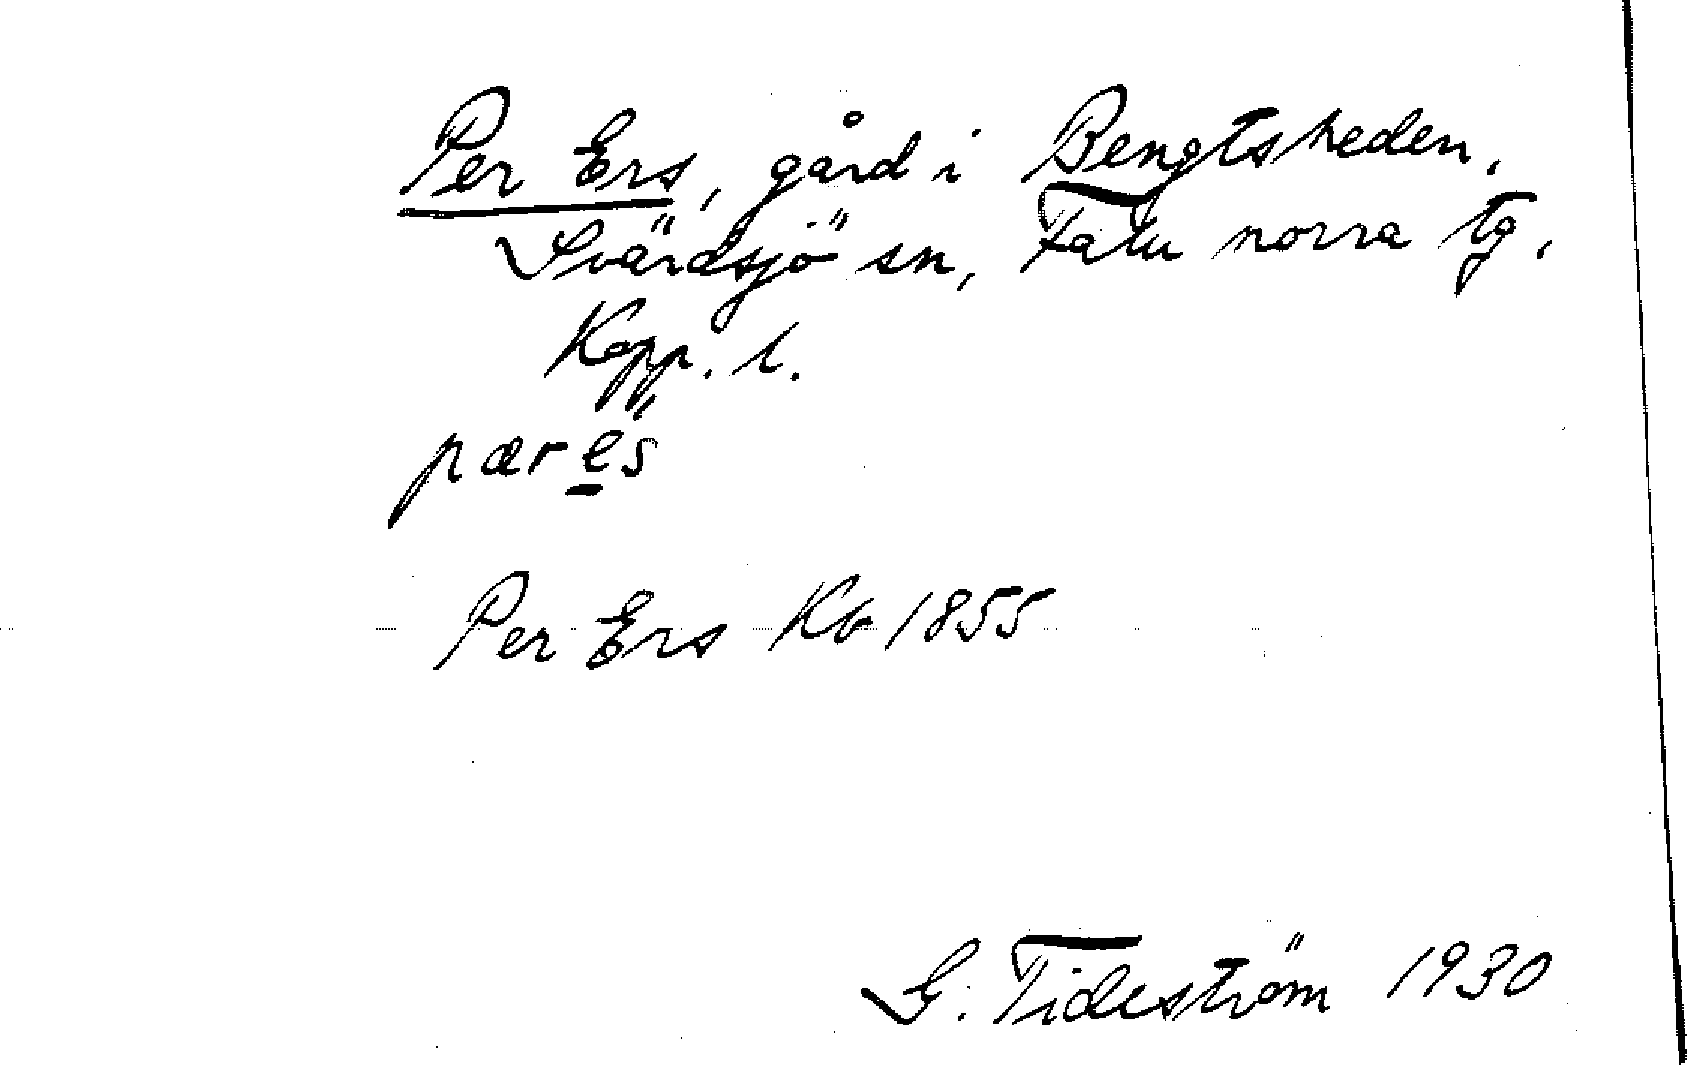 Per Ers, gård i Bengtsheden,
Svärdsjö sn, Falu norra tg,
Kopp. l.
pær e̱s
Per Ers Kb 1855
G. Tideström 1930